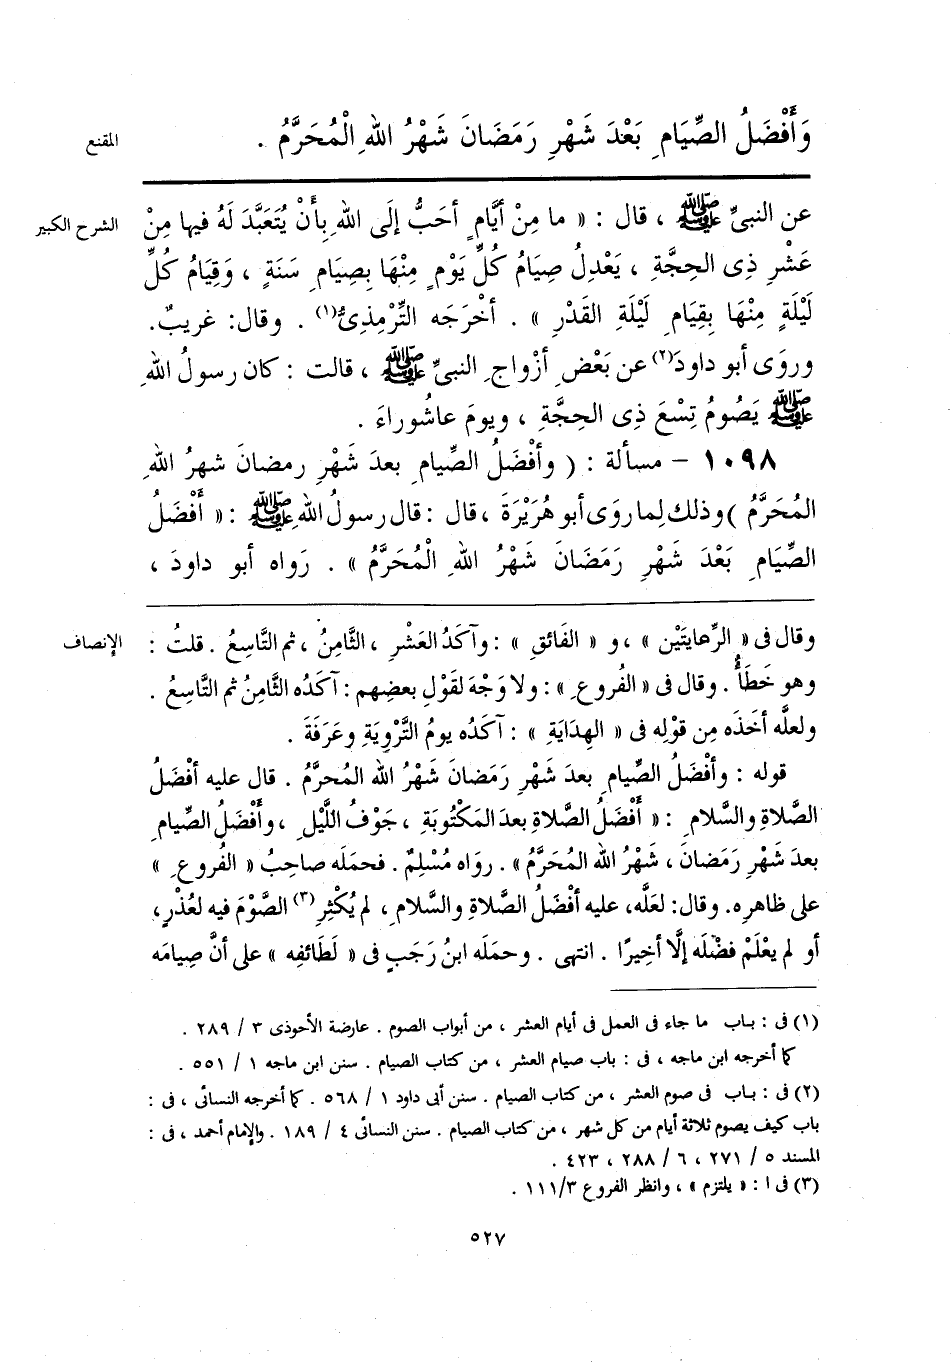 المقنع
وَأَفْضَلُ الصِّيَامِ بَعْدَ شَهْرِ رَمَضَانَ شَهْرُ اللهِ الْمُحَرَّمُ .
الشرح الكبير
عن النبىِّ ﷺ ، قال : « ما مِنْ أيَّامٍ أحَبُّ إلَى اللهِ بِأَنْ يُتَعَبَّدَ لَهُ فيها مِنْ
عَشْرِ ذِى الحِجَّةِ ، يَعْدِلُ صِيَامُ كُلِّ يَوْمٍ مِنْهَا بِصِيَامِ سَنَةٍ ، وَقِيَامُ كُلِّ
لَيْلَةٍ مِنْهَا بِقِيَامِ لَيْلَةِ القَدْرِ » . أخْرَجَه التِّرْمِذِىُّ(١) . وقال: غريبٌ.
وروَى أبو داودَ(٢) عن بَعْضِ أزْواجِ النبىِّ ﷺ ، قالت : كان رسولُ اللهِ
ﷺ يَصُومُ تِسْعَ ذِى الحِجَّةِ ، ويومَ عاشُوراءَ .
١٠٩٨ – مسألة : ( وأفْضَلُ الصِّيامِ بعدَ شَهْرِ رمضانَ شهرُ اللهِ
المُحَرَّمُ ) وذلك لِما روَى أبو هُرَيْرَةَ ، قال : قال رسولُ اللهِ ﷺ : « أَفْضَلُ
الصِّيَامِ بَعْدَ شَهْرِ رَمَضَانَ شَهْرُ اللهِ الْمُحَرَّمُ » . رَواه أبو داودَ ،
الإنصاف
وقال فى « الرِّعايتَيْن » ، و « الفَائقِ » : وآكَدُ العَشْرِ ، الثَّامنُ ، ثم التَّاسِعُ . قلتُ :
وهو خَطَأٌ . وقال فى « الفُروعِ » : ولا وَجْهَ لقَوْلِ بعضِهم : آكدُه الثَّامنُ ثم التَّاسِعُ .
ولعلَّه أخَذَه مِن قوْلِه فى « الهِدَايَةِ » : آكَدُه يومُ التَّرْوِيَةِ وعَرَفَةَ .
قوله : وأفْضَلُ الصِّيامِ بعدَ شَهْرِ رَمَضانَ شَهْرُ الله المُحرَّمُ . قال عليه أفْضَلُ
الصَّلاةِ والسَّلامِ : « أَفْضَلُ الصَّلاةِ بعدَ المَكْتُوبَةِ ، جَوْفُ اللَّيْلِ ، وأَفْضَلُ الصِّيامِ
بعدَ شَهْرِ رَمَضانَ ، شَهْرُ الله المُحَرَّمُ » . رواه مُسْلِمٌ . فحمَلَه صاحِبُ « الفُروعِ »
على ظاهرِه. وقال: لعَلَّه، عليه أفْضَلُ الصَّلاةِ والسَّلامِ ، لم يُكْثِرِ(٣) الصَّوْمَ فيه لعُذْرٍ،
أو لم يعْلَمْ فضْلَه إلَّا أخِيرًا . انتهى . وحمَلَه ابنُ رَجَبٍ فى « لَطَائفِه » على أنَّ صِيامَه
(١) فى : باب ما جاء فى العمل فى أيام العشر ، من أبواب الصوم . عارضة الأحوذى ٣ / ٢٨٩ .
كما أخرجه ابن ماجه ، فى : باب صيام العشر ، من كتاب الصيام . سنن ابن ماجه ١ / ٥٥١ .
(٢) فى : باب فى صوم العشر ، من كتاب الصيام . سنن أبى داود ١ / ٥٦٨ . كما أخرجه النسائى ، فى :
باب كيف يصوم ثلاثة أيام من كل شهر ، من كتاب الصيام . سنن النسائى ٤ / ١٨٩ . والإمام أحمد ، فى :
المسند ٥ / ٢٧١ ، ٦ / ٢٨٨ ، ٤٢٣ .
(٣) فى ا : « يلتزم » ، وانظر الفروع ١١١/٣ .
٥٢٧